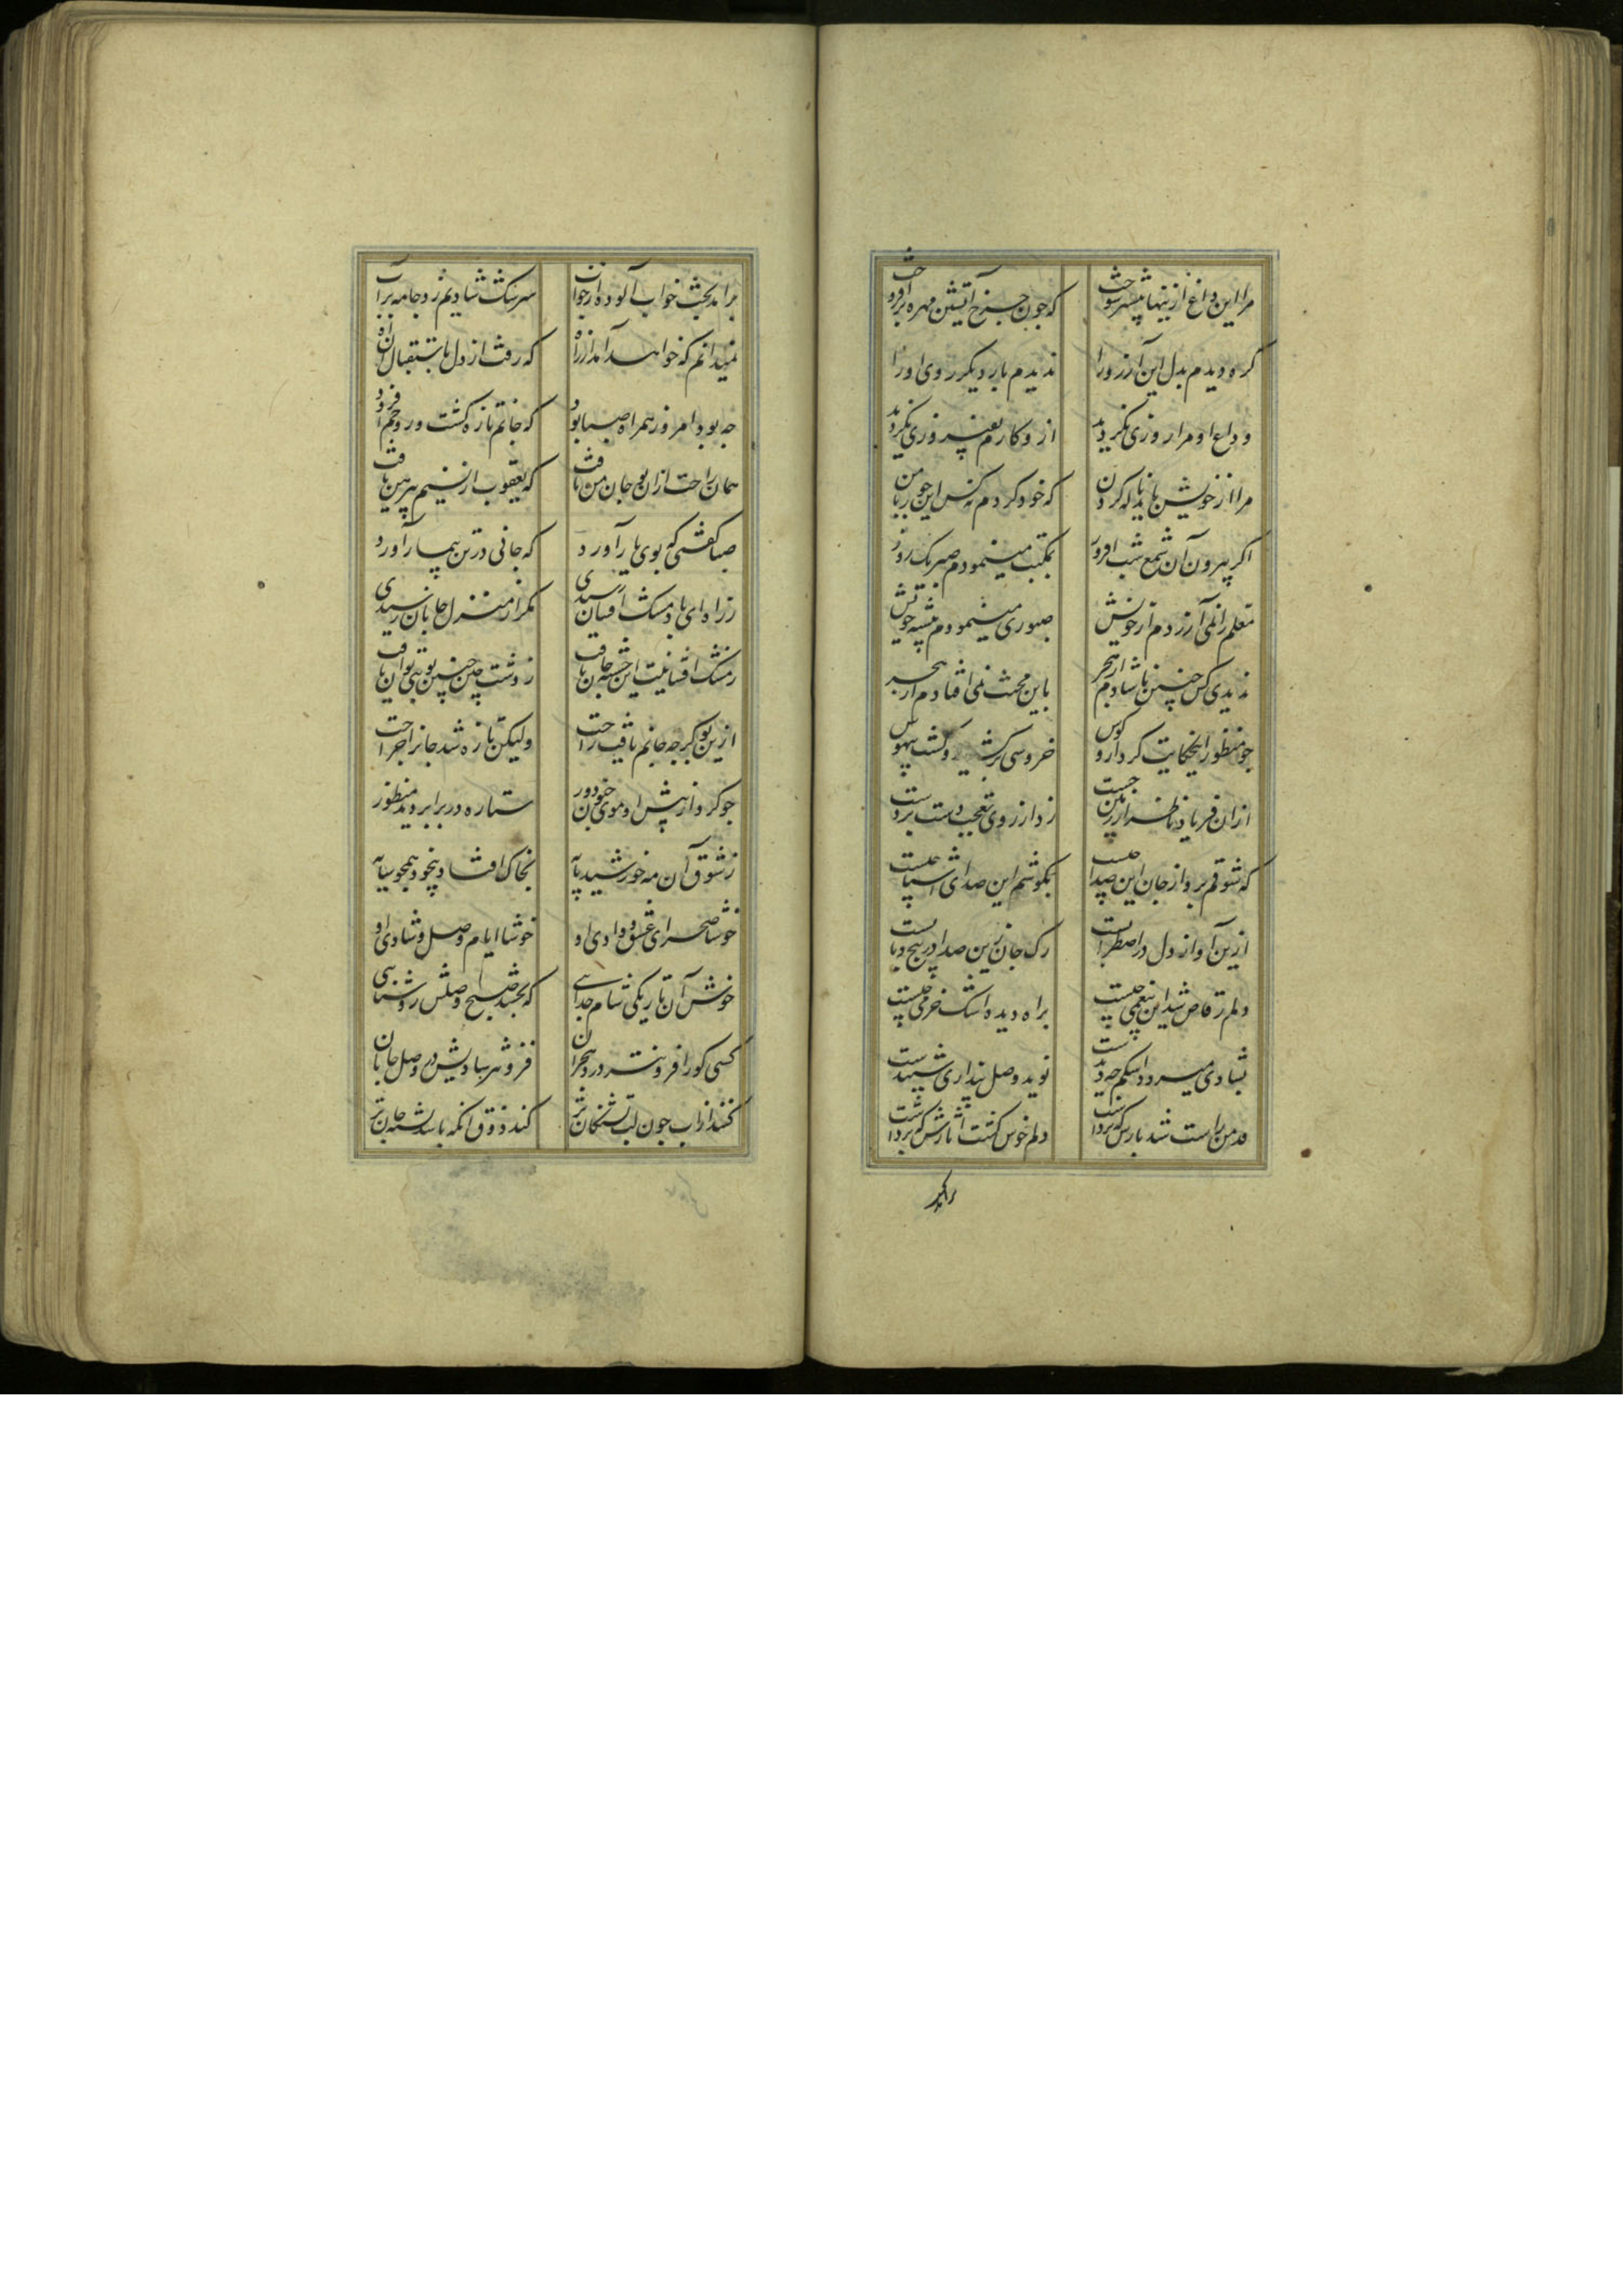 مرا این داغ ازینها بیشتر سوخت
که چون چرخ آتشین مهره برافروخت
گره دیدم بدل این آرزو را
ندیدم بار دیگر روی او را
وداع او مرا روزی نگردید
ازو کارم بفیروزی نگردید
مرا از خویش باید ناله کردن
که خود کردم نه کس این جور با من
اگر بیرون آن شمع شب افروز
بمکتب مینمودم صبر یک روز
معلم را نمی آزردم از خویش
صبوری مینمودم پیشه خویش
ندیدی کس چنین ناشادم از هجر
باین محنت نمی افتادم از هجر
چو منظور این حکایت کرد ازو گوش
خروشی برکشید و گشت بیهوش
از آن فریاد ناظر از زمین جست
زد از روی تعجب دست بر دست
که شوقم برد از جان این صدا چیست
بگوشم این صدای آشنا چیست
ازین آواز دل در اضطرابست
رگ جان زین صدا در پیچ و تابست
دلم رقاص شد این نغمه چیست
براه دیده اشک خرمی چیست
بشادی میرود اشکم چه دیدست
نوید وصل پنداری شنیدست
قد من راست شد بارش که برداشت
دلم خوش گشت آزارش که برداشت
برآمد
برآمد بخت خواب آلوده از خواب
سرشک شادیم زد جامه بر آب
نمیدانم که خواهد آمد از راه
که رفت از دل باستقبال آن آه
چه بو بود امروز همراه صبا بود
که جانم تازه گشت و روحم آسود
همان راحت از آن بو جان من یافت
که یعقوب از نسیم پیرهن یافت
صبا گفتی که بوی یار آورد
که جانی در تن بیمار آورد
ز راه ای باد مشک افشان رسیدی
مگر از منزل جانان رسیدی
ز مشک افشانیت این خسته جان یافت
ز دشت چین چنین بویی توان یافت
ازین بو گر چه جانم یافت راحت
ولیکن تازه شد جانرا جراحت
چو کرد از پیش او موی خود دور
ستاده در برابر دید منظور
ز شوق آن مه خورشید پایه
بخاک افتاد بیخود همچو سایه
خوشا صحرای عشق و وادی او
خوشا ایام وصل و شادی او
خوش آن تاریکی شام جدایی
که بخشد صبح وصلش روشنایی
کسی کو را فزونتر درد هجران
فزونتر شادیش در وصل جانان
کند از آب چون لب تشنگان تر
کند ذوق آنکه باشد تشنه جان تر